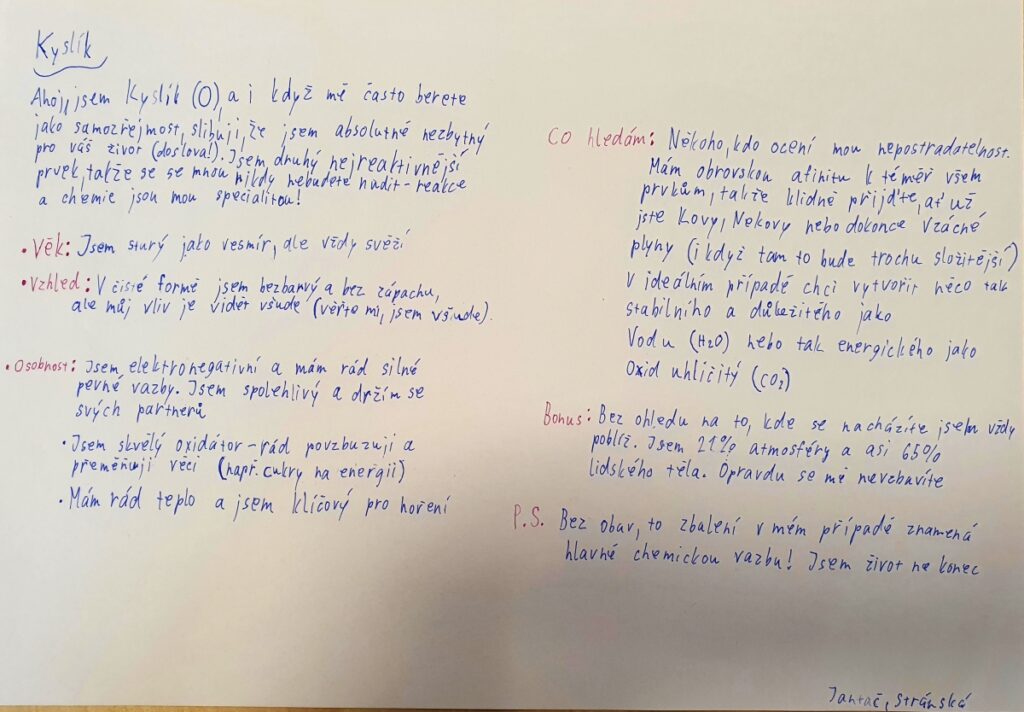 Kyslík
Ahoj, jsem Kyslík (O), a i když mě často berete
jako samozřejmost, slibuji, že jsem absolutně nezbytný
pro váš život (doslova!). Jsem druhý nejreaktivnější
prvek, takže se se mnou nikdy nebudete nudit - reakce
a chemie jsou mou specialitou!
• Věk: Jsem starý jako vesmír, ale vždy svěží
• Vzhled: V čisté formě jsem bezbarvý a bez zápachu,
ale můj vliv je vidět všude (věřte mi, jsem všude).
• Osobnost: Jsem elektronegativní a mám rád silné
pevné vazby. Jsem spolehlivý a držím se
svých partnerů
• Jsem skvělý oxidátor - rád povzbuzuji a
přeměňuji věci (např. cukry na energii)
• Mám rád teplo a jsem klíčový pro hoření
Co hledám: Někoho, kdo ocení mou nepostradatelnost.
Mám obrovskou afinitu k téměř všem
prvkům, takže klidně přijďte, ať už
jste Kovy, Nekovy nebo dokonce Vzácné
plyny (i když tam to bude trochu složitější)
V ideálním případě chci vytvořit něco tak
stabilního a důležitého jako
Vodu (H2O) nebo tak energického jako
Oxid uhličitý (CO2)
Bonus: Bez ohledu na to, kde se nacházíte jsem vždy
poblíž. Jsem 21% atmosféry a asi 65%
lidského těla. Opravdu se mě nezbavíte
P.S. Bez obav, to zbalení v mém případě znamená
hlavně chemickou vazbu! Jsem život ne konec
Jantač, Stránská